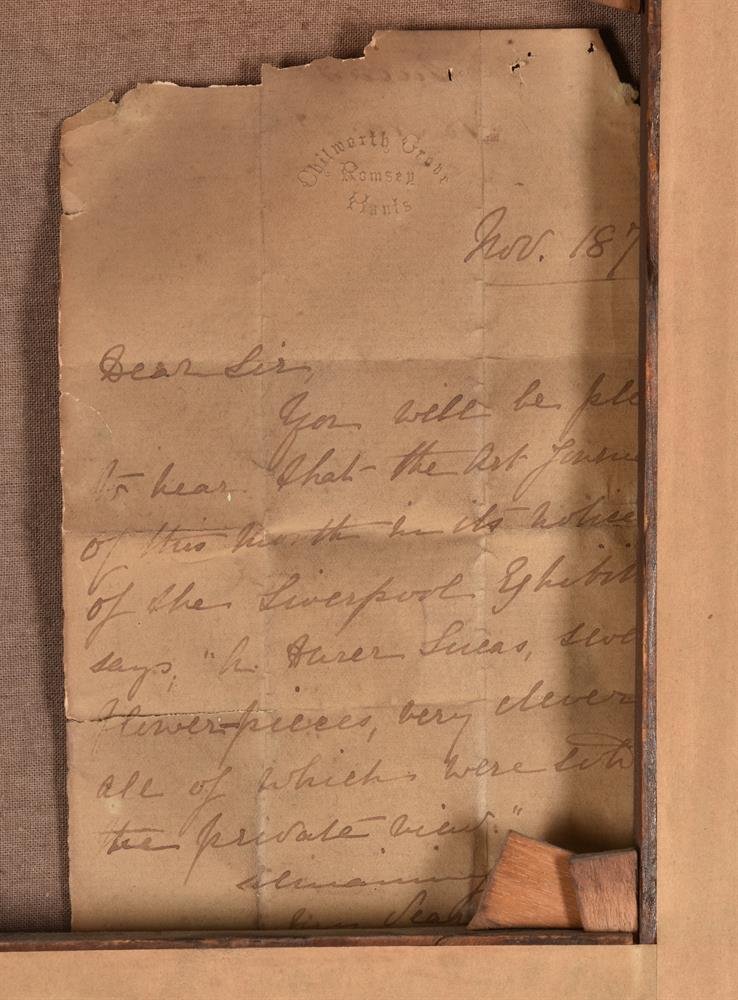 Chilworth Grove
Romsey
Hants
Nov. 187
Dear Sir,
You will be ple
to hear that the Art Journa
of this month in its notice
of the Liverpool Exhibit
says, " A. Durer Lucas, seve
flower-pieces, very clever
all of which were sold
the private view."
remaining
Dear